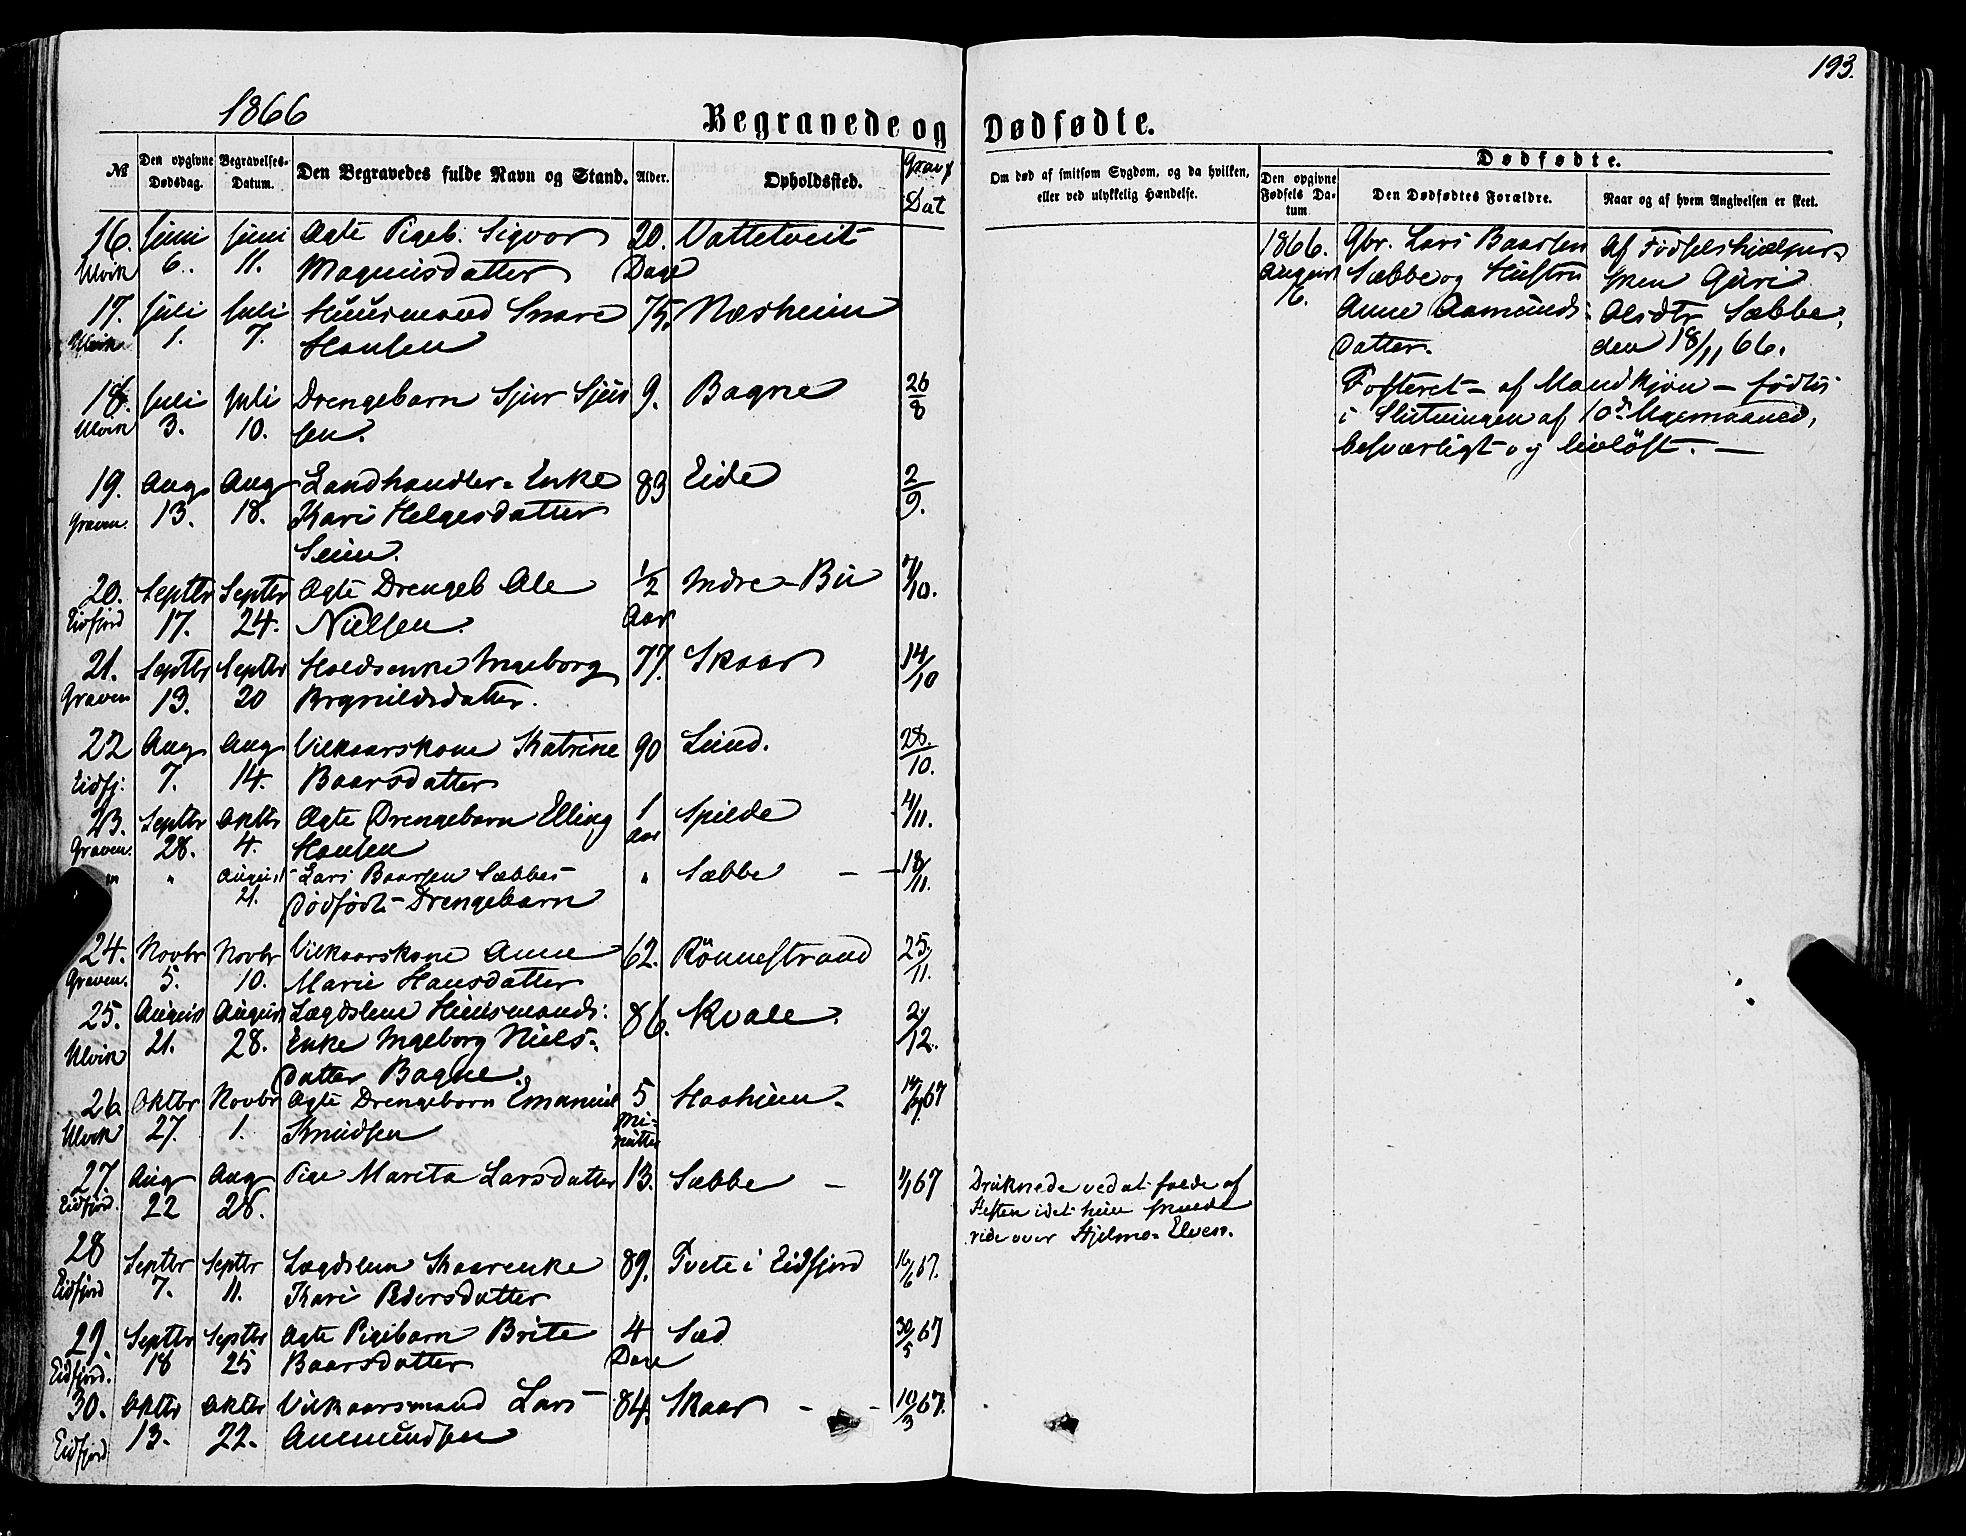 193.
1866
Begravede og Dødfødte.
№
Den opgivne Dødsdag.
Begravelses-Datum.
Den Begravedes fulde Navn og Stand.
Alder.
Opholdssted.
Dat
Om død af smitsom Sygdom, og da hvilken, eller ved ulykkelig Hændelse.
Dødfødte.
Den opgivne Fødsels Datum
Den Dødfødtes Forældre.
Naar og af hvem Angivelsen er skeet.
16. Juni Juni Ægte Pigeb. Sigvor 20. Vattetveit
Ulvik 6. 11. Magnusdatter Dage
17. Juli Juli Huusmand Snare 75. Næsheim
Ulvik 1. 7. Hansen
18. Juli Juli Drengebarn Sjur Sjur 9. Bagne 26/8
Ulvik 3. 10. sen.
19. Aug Aug Landhandler-Enke 83 Eide 2/9.
Graven. 13. 18. Kari Helgesdatter
Seim.
20. Septbr Septbr Ægte Drengeb Ole 1/2 Indre-Bu 7/10.
Eidfjord 17. 24. Nielsen. Aar
21. Septbr Septbr Ingeborg 77. Skaar 14/10
Graven 13. 20 Brynildsdatter.
22 Aug Aug Vilkaarskone Katrine 90 Lund. 28./10.
Eidfj: 7. 14. Baarsdatter
23. Septbr Oktbr Ægte Drengebarn Elling 1 Spilde 4/11.
Graven. 28. 4. Hansen Aar
" " August Lars Baarsen Sæbbes " Sæbbe — 18/11.
21. dødfødt Drengebarn
24. Novbr Novbr Vilkaarskone Anne 62. Rönnestrand 25/11.
Graven. 5. 10. Marie Hansdatter
25. August August Lægdslem Huusmands: 86. Kvale. 2/12.
Ulvik 21. 28. Enke Ingeborg Niels-
datter Bagne.
26. Oktbr Novbr Ægte Drengebarn Emanuel 5 Haaheim. 67
Ulvik 27. 1. Knudsen Mi-
nutter
27. Aug Aug Pige Marita Larsdatter 13. Sæbbe — 1/1 67
Eidfjord. 22 28.
28 Septbr Septbr Lægdslem 89. Tvete i Eidfjord 16/6 67.
Eidfjord 7. 11. Kari Pedersdatter
29. Septbr Septbr Ægte Pigebarn Brite 4 Sæd 30/5 67
Eidfjord. 18 25 Baarsdatter Dage
30. Oktbr Oktbr Vilkaarsmand Lars 84. Skaar - - 10/3 67.
Eidfjord 13. 22. Anmundsen
Druknede ved at falde af
Hesten idet hun skulde
ride over Hjelmo-Elven.
1866.
August
16.
Gbr. Lars Baarsen
Sæbbe og Hustru
Anne Aamunds-
datter.
Af Fødselshjælper-
sken Guri
Olsdtr Sæbbe,
den 18/11 66.
Fosteret — af Mandkjön — fødtes
i Slutningen af 10de Ugemaaned,
besværligt og livlöst. —